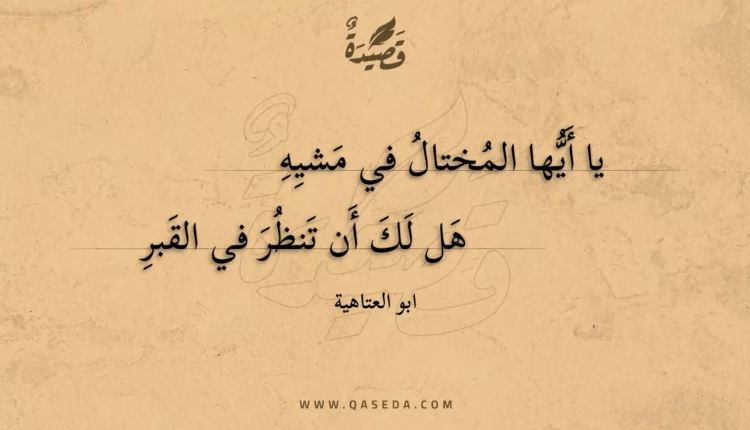 قَصِيدَةٌ
يا أَيُّها المُختالُ في مَشيِهِ
هَل لَكَ أَن تَنظُرَ في القَبرِ
ابو العتاهية
WWW.QASEDA.COM